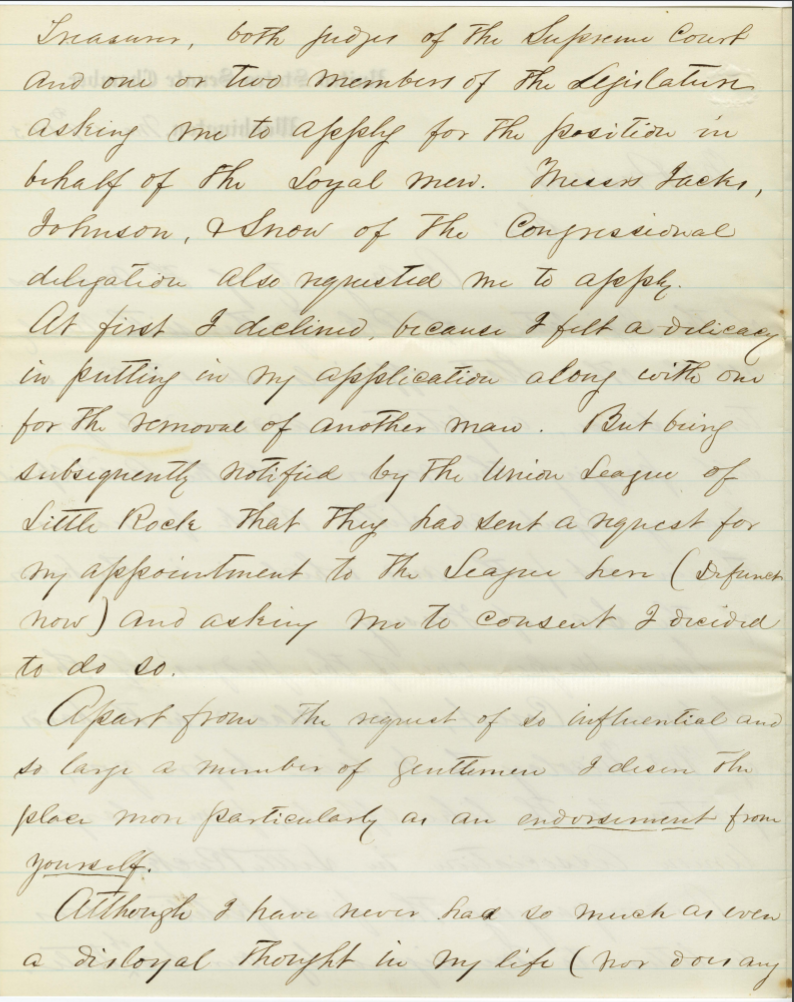 Treasurer, both judges of the Supreme Court
and one or two members of the Legislature
asking me to apply for the position in
behalf of the Loyal men. Messrs Jacks,
Johnson, & Snow of the Congressional
delegation also requested me to apply.
At first I declined, because I felt a delicacy
in putting in my application along with one
for the removal of another man. But being
subsequently notified by the Union League of
Little Rock that they had sent a request for
my appointment to the League here (defunct
now) and asking me to consent I decided
to do so.
Apart from the request of so influential and
so large a number of gentlemen I desire the
place more particularly as an endorsement from
yourself.
Although I have never had so much as even
a disloyal thought in my life (nor does any